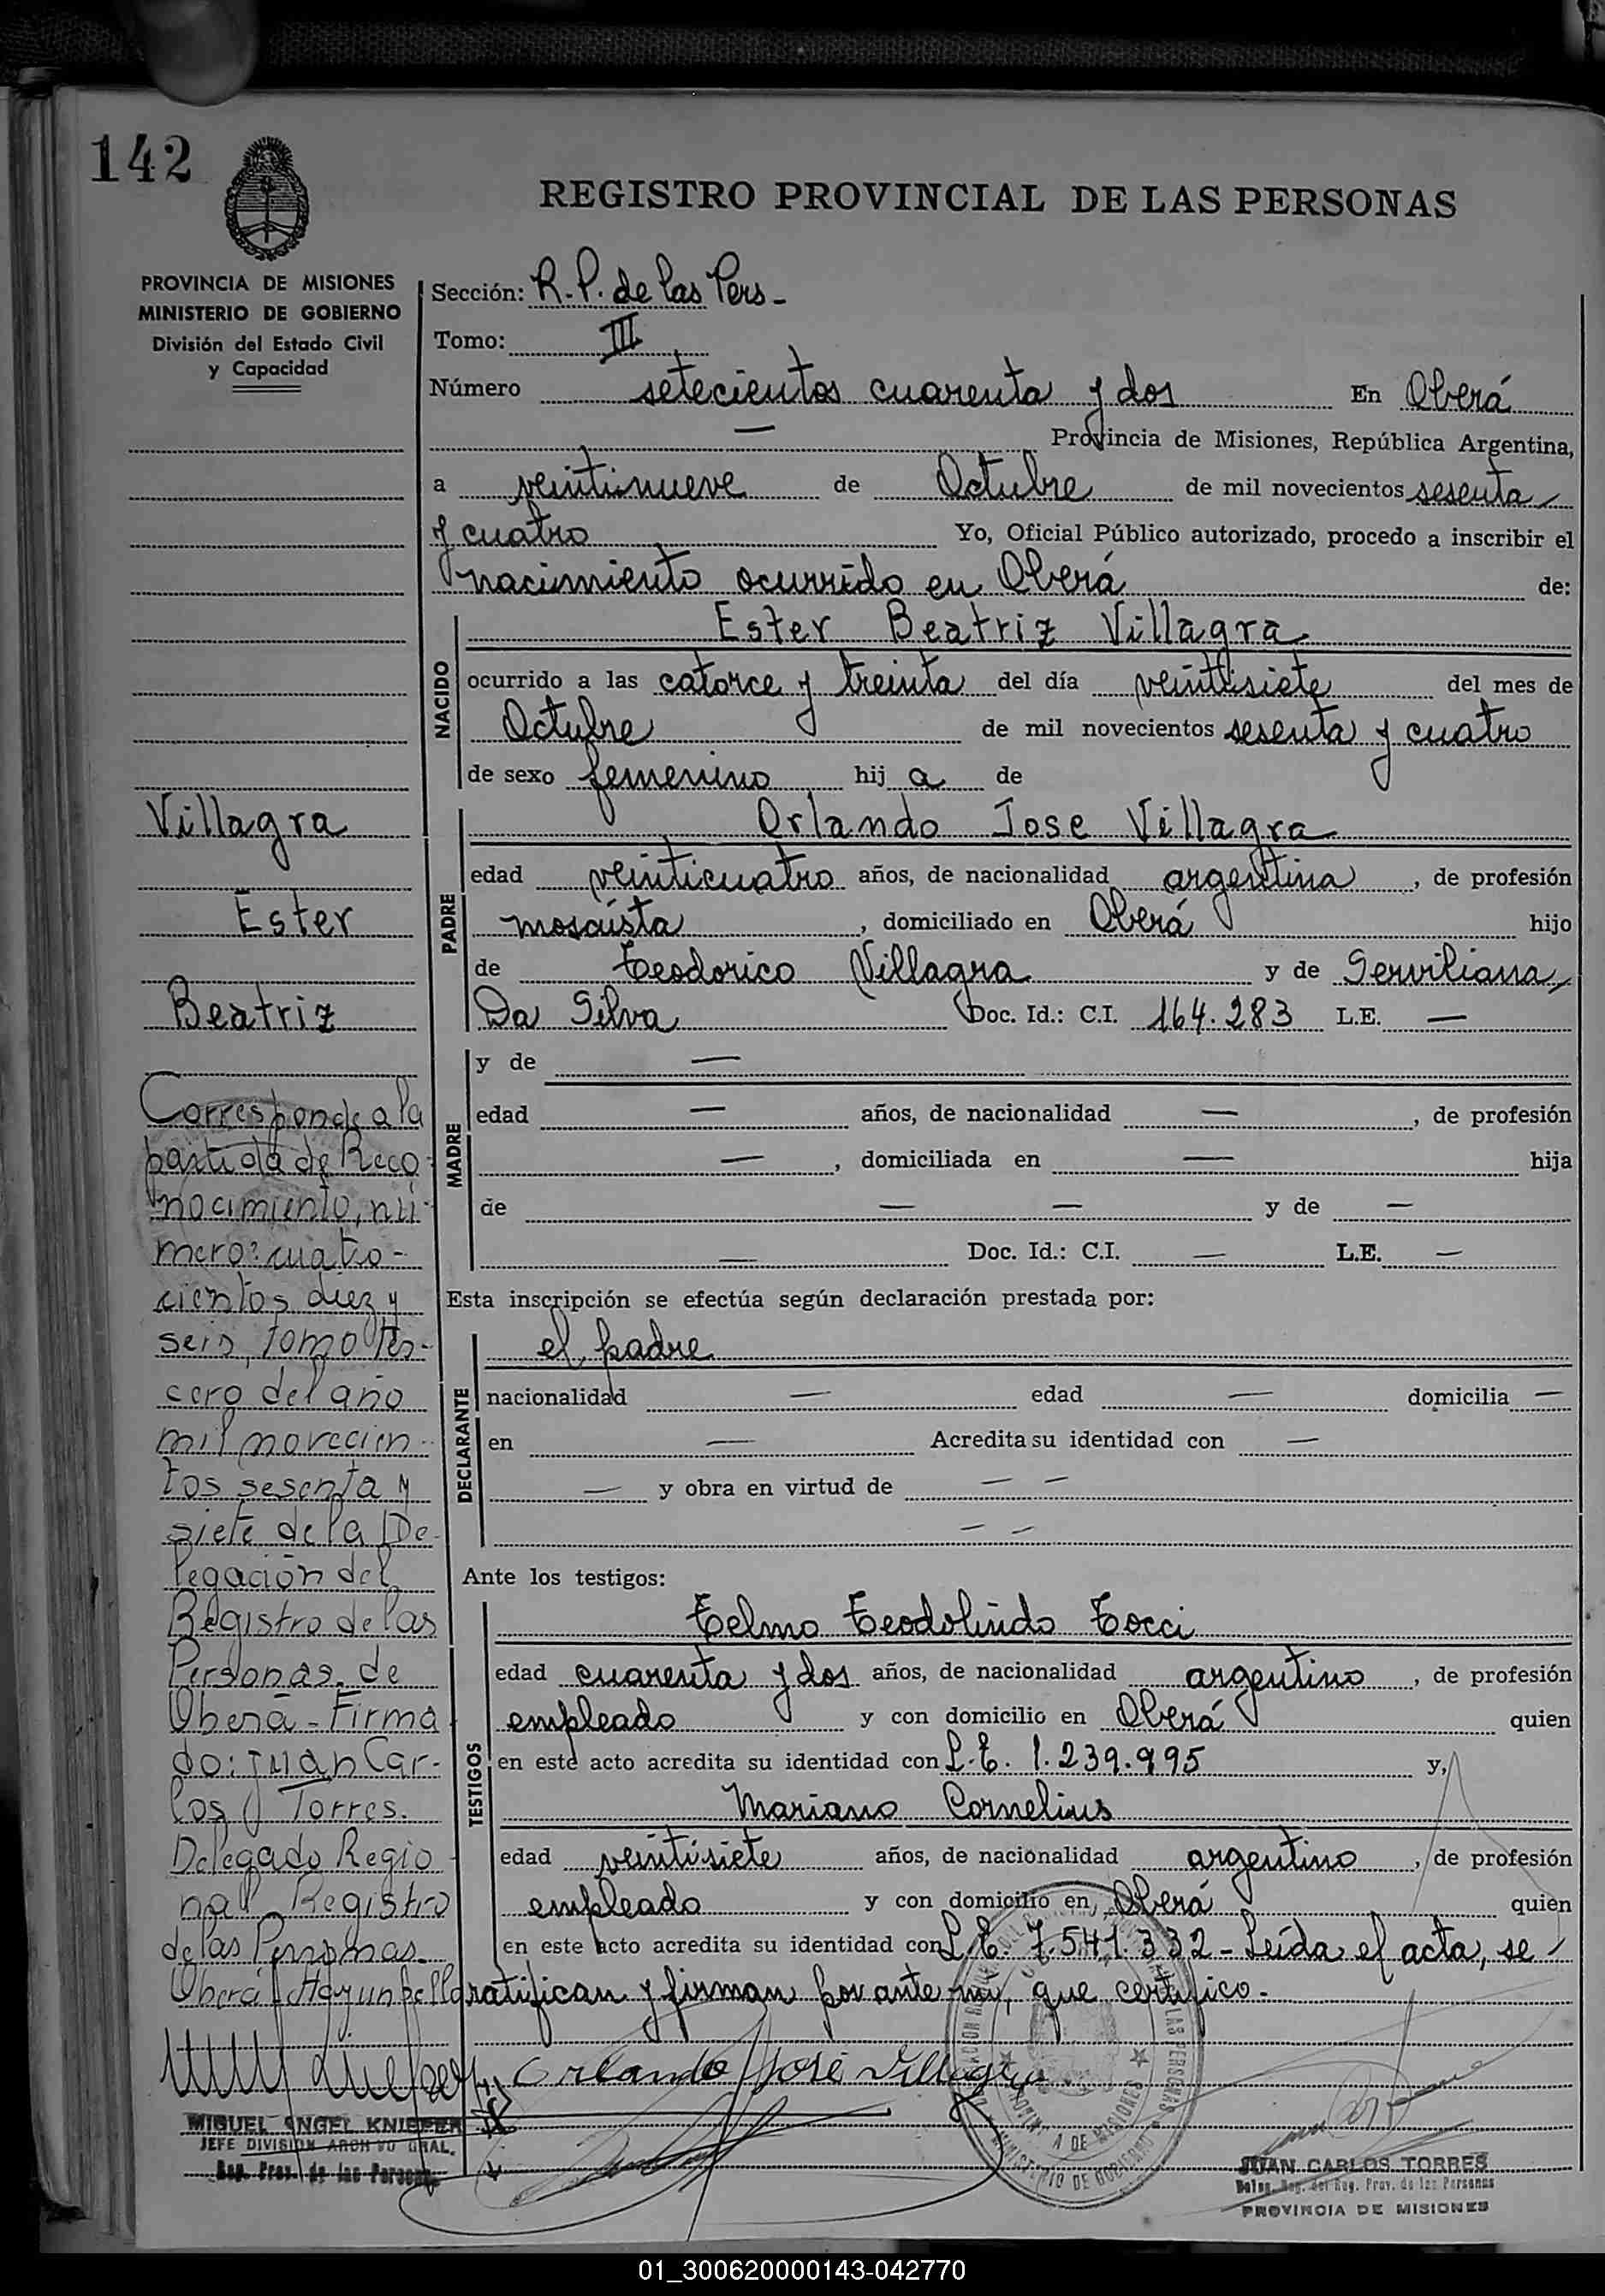 142
REGISTRO PROVINCIAL DE LAS PERSONAS
PROVINCIA DE MISIONES
MINISTERIO DE GOBIERNO
División del Estado Civil
y Capacidad
Sección: R.P. de las Pers-
Tomo: III
Número setecientos cuarenta y dos En Oberá
— Provincia de Misiones, República Argentina,
a veintinueve de Octubre de mil novecientos sesenta
y cuatro Yo, Oficial Público autorizado, procedo a inscribir el
nacimiento ocurrido en Oberá de:
NACIDO
Ester Beatriz Villagra
ocurrido a las catorce y treinta del día veintisiete del mes de
Octubre de mil novecientos sesenta y cuatro
de sexo femenino hij a de
PADRE
Orlando Jose Villagra
edad veinticuatro años, de nacionalidad argentina, de profesión
mosaista, domiciliado en Oberá hijo
de Teodorico Villagra y de Serviliana
Da Silva Doc. Id.: C.I. 164.283 L.E. —
MADRE
y de —
edad — años, de nacionalidad —, de profesión
—, domiciliada en — hija
de — — y de —
— Doc. Id.: C.I. — L.E. —
Esta inscripción se efectúa según declaración prestada por:
DECLARANTE
el padre
nacionalidad — edad — domicilia —
en — Acredita su identidad con —
— y obra en virtud de — —
— —
Ante los testigos:
TESTIGOS
Telmo Teodolindo Tocci
edad cuarenta y dos años, de nacionalidad argentino, de profesión
empleado y con domicilio en Oberá quien
en este acto acredita su identidad con L.E. 1.239.995 y,
Mariano Cornelius
edad veintisiete años, de nacionalidad argentino, de profesión
empleado y con domicilio en Oberá quien
en este acto acredita su identidad con L.E. 7.541.332- Leída el acta, se
ratifican y firman por ante mí, que certifico.-
Orlando José Villagra
JUAN CARLOS TORRES
Deleg. Reg. del Reg. Prov. de las Personas
PROVINCIA DE MISIONES
Villagra
Ester
Beatriz
Corresponde a la
partida de Reco-
nocimiento, nú-
mero: cuatro-
cientos diez y
seis, tomo ter-
cero del año
mil novecien-
tos sesenta y
siete de la De-
legación del
Registro de las
Personas de
Oberá - Firma
do: Juan Car-
los Torres.
Delegado Regio
nal Registro
de las Personas.
Oberá Hay un sello
MIGUEL ANGEL KNIEPER
JEFE DIVISION ARCHIVO GRAL.
Reg. Prov. de las Personas
01_300620000143-042770